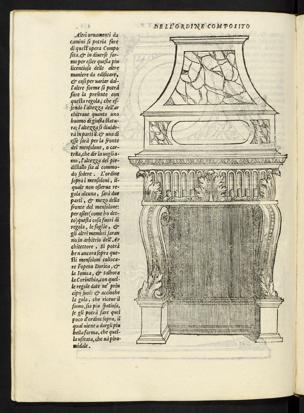 DELL'ORDINE COMPOSITO
Altri ornamenti da
camini si potria fare
di quest'opera Compo
sita, & in diverse for-
me per esser questa piu
licentiosa delle altre
maniere da edificare,
& cosi per variar dal-
l'altre forme si potria
fare la presente con
questa regola; che es-
sendo l'altezza dell'ar
chitrave quanto uno
huomo di giusta statu-
ra; l'altezza si divide-
rà in parti & una di
esse sarà per la fronte
del mensolone, o car-
tella, che dir la vogliamo,
l'altezza del pie-
distallo sia al commo-
do sedere. L'ordine
sopra i mensoloni, il-
quale non osserva re-
gola alcuna, sarà due
parti, & mezo della
fronte del mensolone:
per esser (come ho det-
to) questa cosa fuori di
regola, le foglie, &
gli altri membri saran
no in arbitrio dell'Ar
chitettore. Si potrà
ben ancora sopra que-
sti mensoloni colloca-
re l'opera Dorica, &
la Ionica, & talhora
la Corinthia, con quel-
le regole date ne' prin
cipij suoi: & accioche
la gola, che riceve il
fumo, sia piu spatiosa,
se gli potrà fare quel
poco d'ordine sopra, il
qual viene a dargli piu
bella forma, che quel-
la usitata, che và pira-
midale.